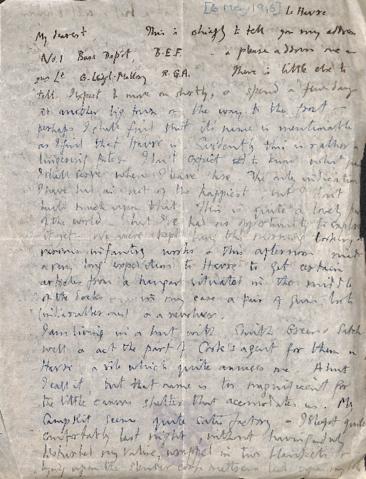 [6 May, 1916] Le Havre
My dearest This is chiefly to tell you my address
No. 1 Base Depôt, B.E.F. please address me
2nd Lt G. Leigh-Mallory R.G.A. There is little else to
tell. I expect to move on shortly, & spend a few days
at another big town on the way to the front
perhaps I shall find that its name is mentionable
as I find that Havre is. Evidently this is rather a
lingering place. I don't expect to know what
I shall leave when I leave here. The only indication
I have had is not of the happiest but I don't
build much upon that. This is quite a lovely part
of the world but I've had no opportunity to explore
it yet. We were kept the morning looking
infantry works & this afternoon made
a very long expedition to Havre to get certain
articles from a hangar situated in the middle
of the docks in my case a pair of gum boots
(indispensable) & a revolver.
I am living in a hut with Smith Green
well & act the part of Cook's agent for them in
Havre a rôle which quite me. A hut
I call it but that name is too magnificent for
the little canvas shelter that accommodates us. My
Camp Kit seems quite satisfactory & I slept quite
comfortably last night, without having
disturbed my valise, wrapped in two blankets &
lying upon the